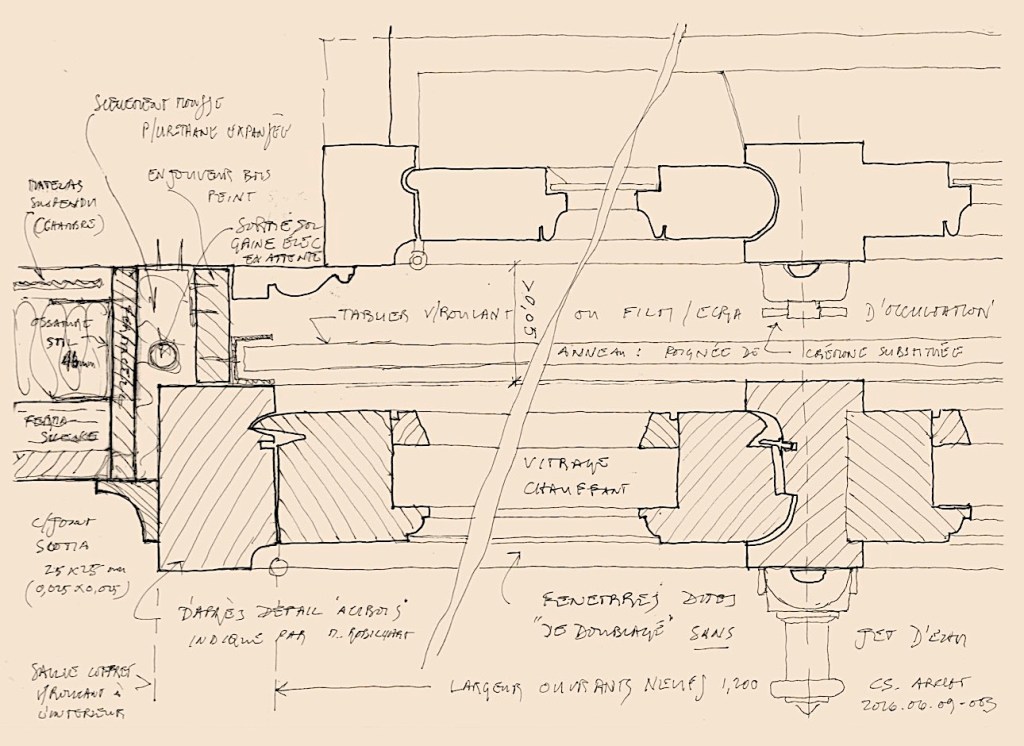 SCELLEMENT MOUSSE
P/URETHANE EXPANSÉE
ENJOLIVEUR BOIS
PEINT
MATELAS
SUSPENDU
(CHAMBRE)
SORTIE SOL
GAINE ÉLEC
EN ATTENTE
OSSATURE
STIL
48mm
FERMA-
SILENCE
TABLIER V/ROULANT OU FILM/ECRA D'OCCULTATION
0,05
ANNEAU: POIGNÉE DE CRÉMONE SUBSTITUÉE
VITRAGE
CHAUFFANT
C/JOINT
SCOTIA
25 x 25 mm
(0,025 x 0,025)
D'APRÈS DÉTAIL "ACIBOIS"
INDIQUÉ PAR M.
FENETRRES DITES
"DE DOUBLAGE" SANS JET D'EAU
SAILLIE COFFRET
V/ROULANT À
L'INTERIEUR
LARGEUR OUVRANTS NEUFS 1,200
CS. ARCLET
2026.06.09-003